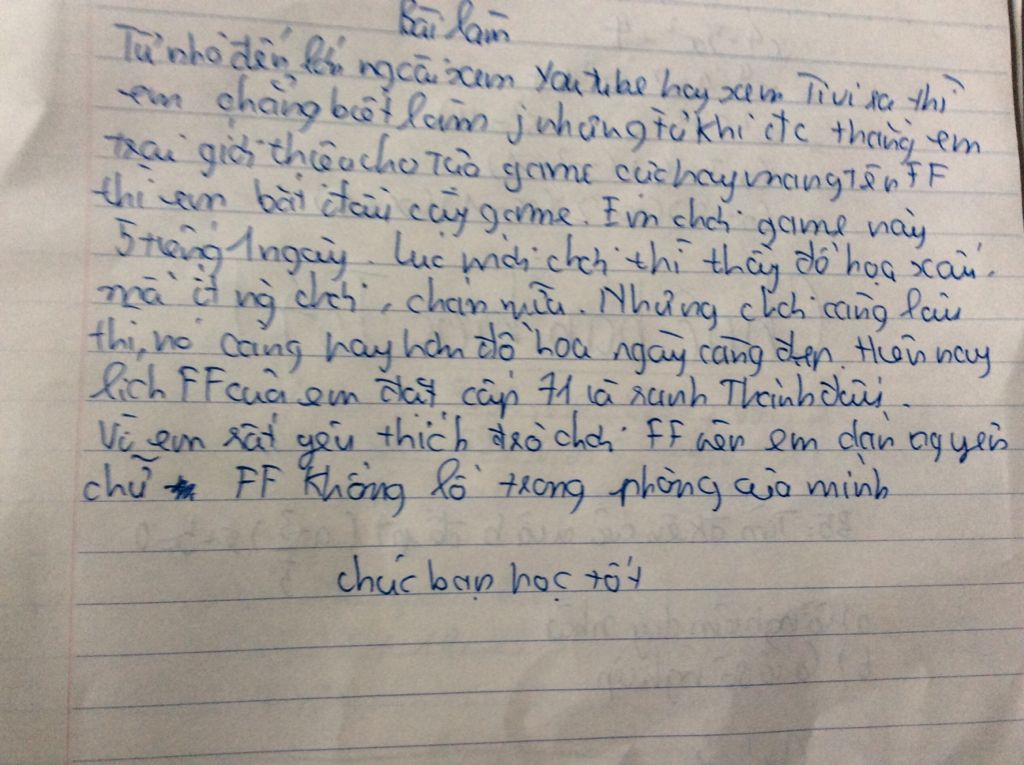 Bài làm
Từ nhỏ đến lớn ngoài xem Youtube hay xem Tivi ra thì
em chẳng biết làm j nhưng từ khi đc thằng em
trai giới thiệu cho tữa game cực hay mang tên FF
thì em bắt đầu cày game. Em chơi game này
5 tiếng 1 ngày. Lúc mới chơi thì thấy đồ họa xấu.
mà ít ng chơi, chán nữa. Nhưng chơi càng lâu
thì, nó càng hay hơn đồ họa ngày càng đẹp. Hiện nay
lích FF của em đạt cấp 71 và ranh Thành đấu.
Vì em rất yêu thích trò chơi FF nên em dán nguyên
chữ FF khổng lồ trong phòng của mình
chúc bạn học tốt